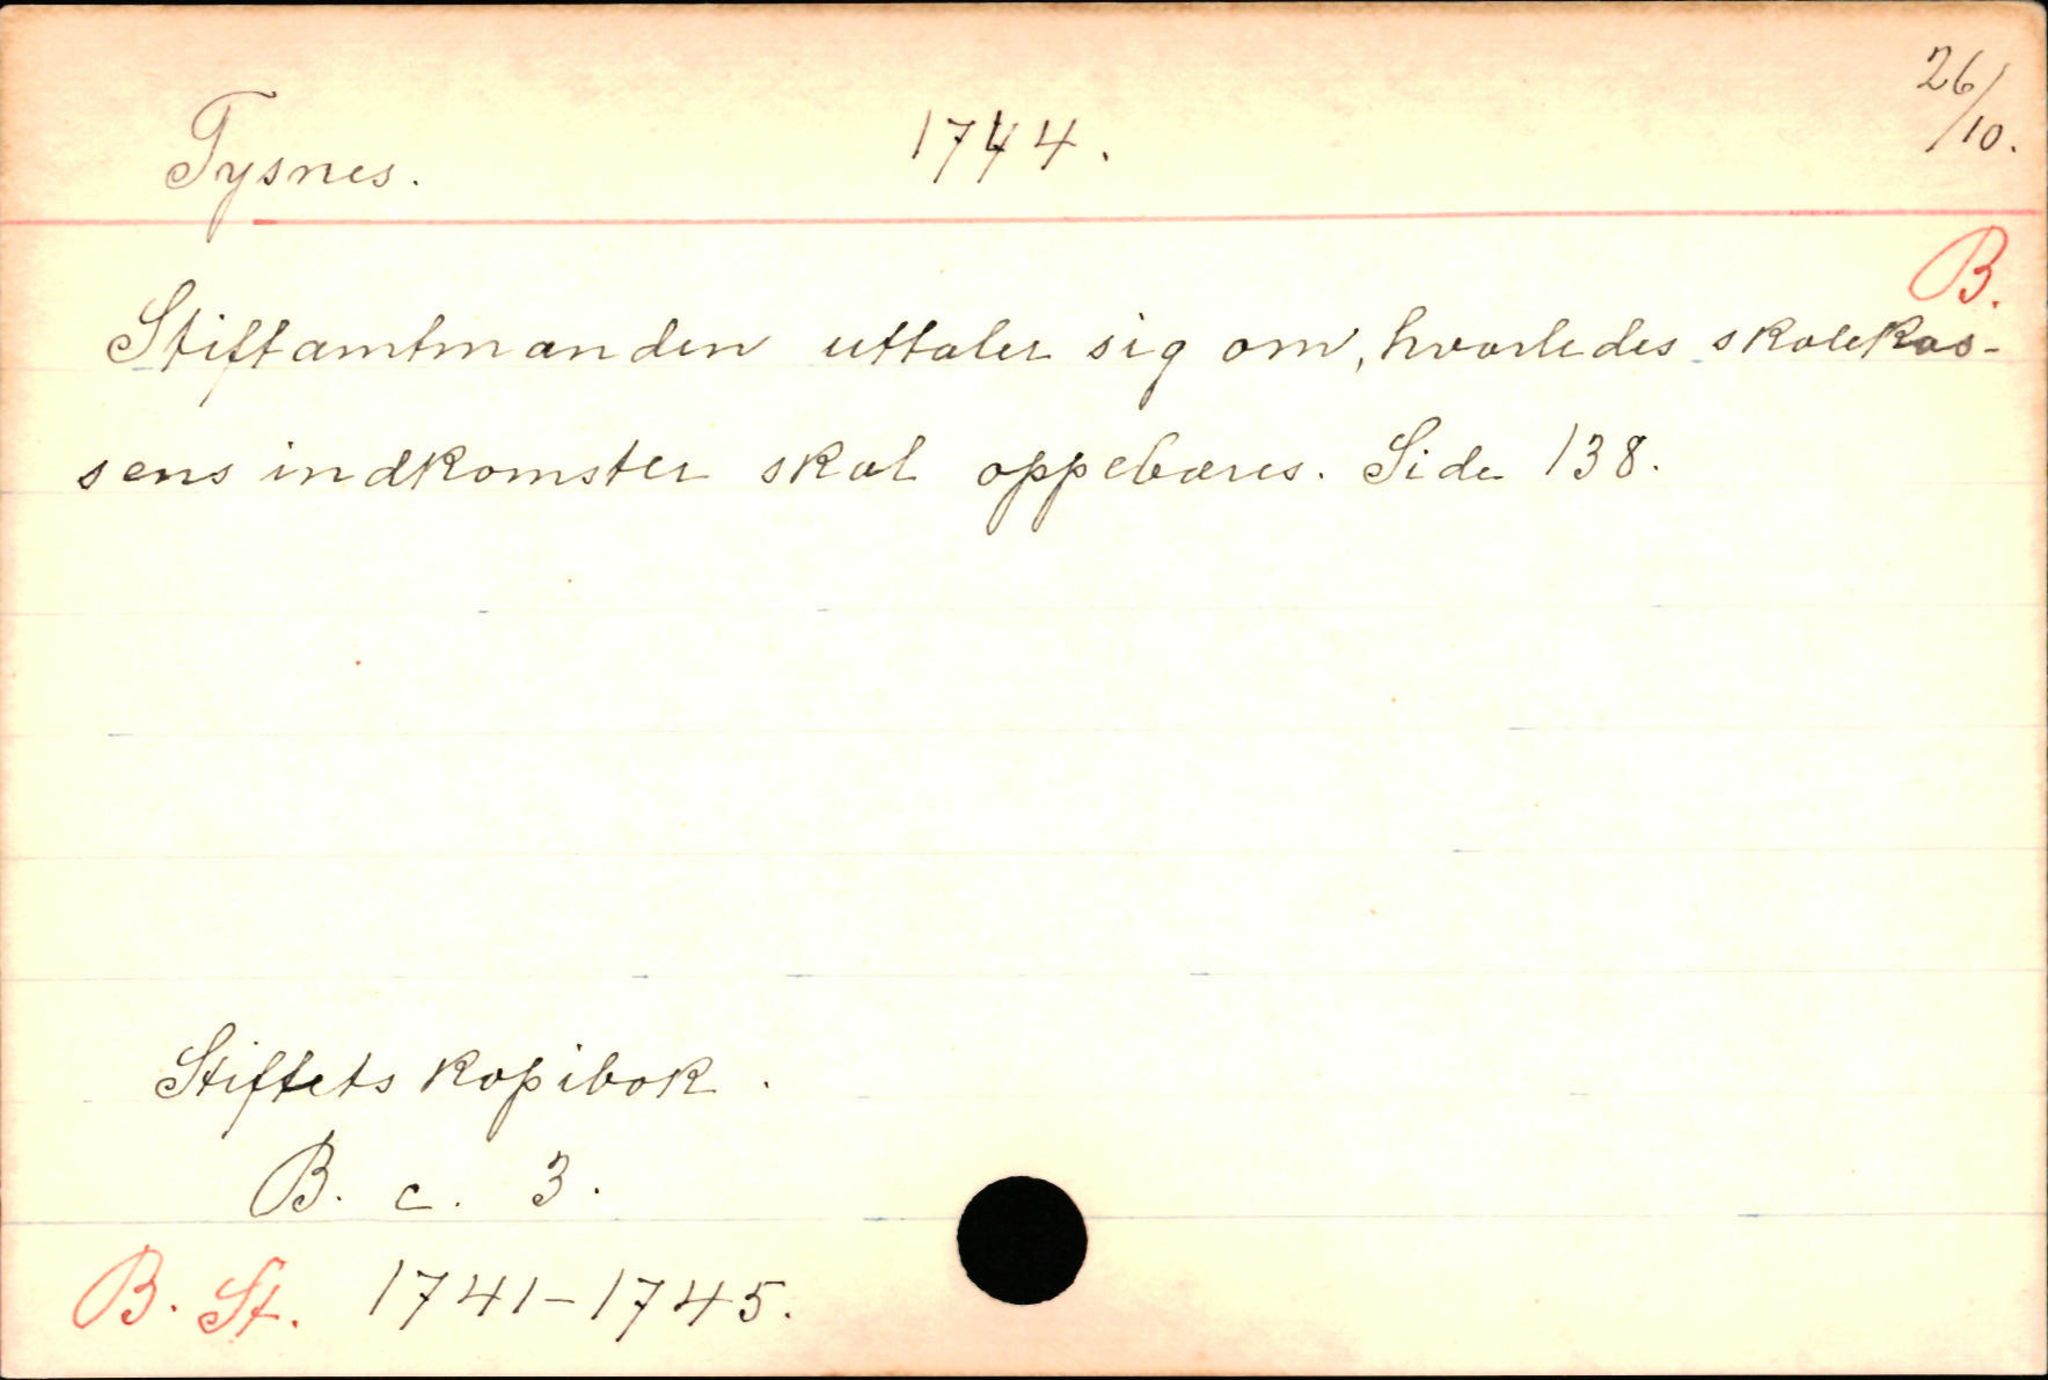 Tysnes. 1744. 26/10.
B.
Stiftamtmanden uttaler sig om, hvorledes skolekas-
sens indkomster skal oppebæres. Side 138.
Stiftets kopibok.
B. c. 3.
B. St. 1741-1745.